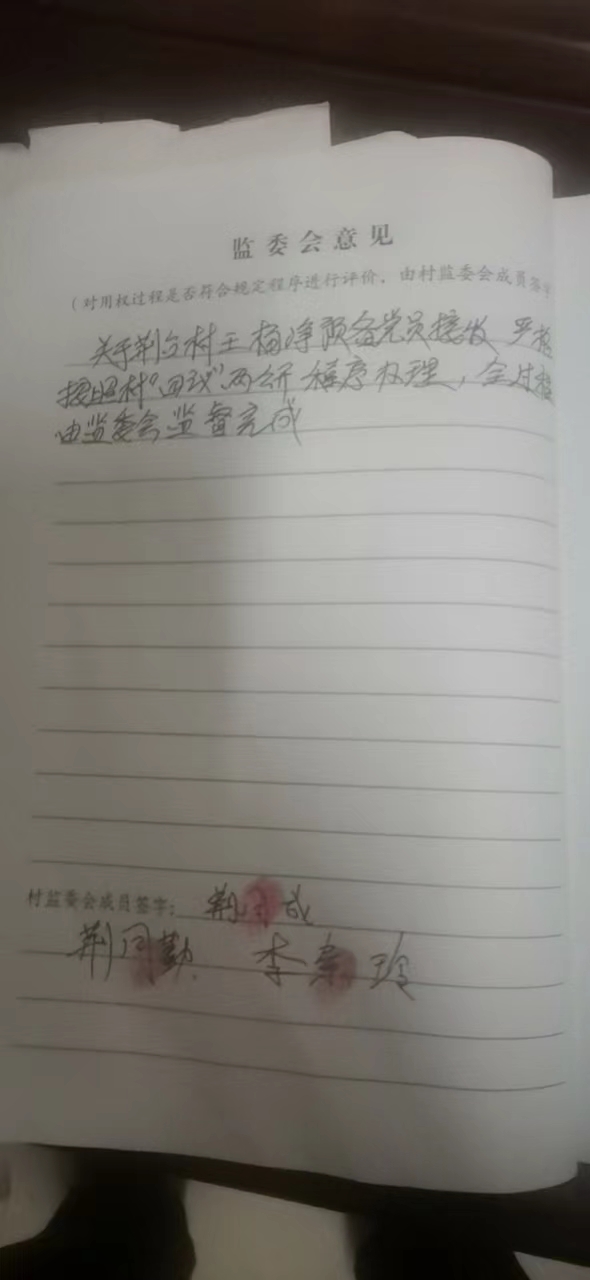 监委会意见
（对用权过程是否符合规定程序进行评价，由村监委会成员签字
关于荆 村王 净预备党员接收 严格
按照村“四议”两公开 程序办理，全过程
由监委会监督完成
村监委会成员签字： 荆 成
荆同勤 李 玲